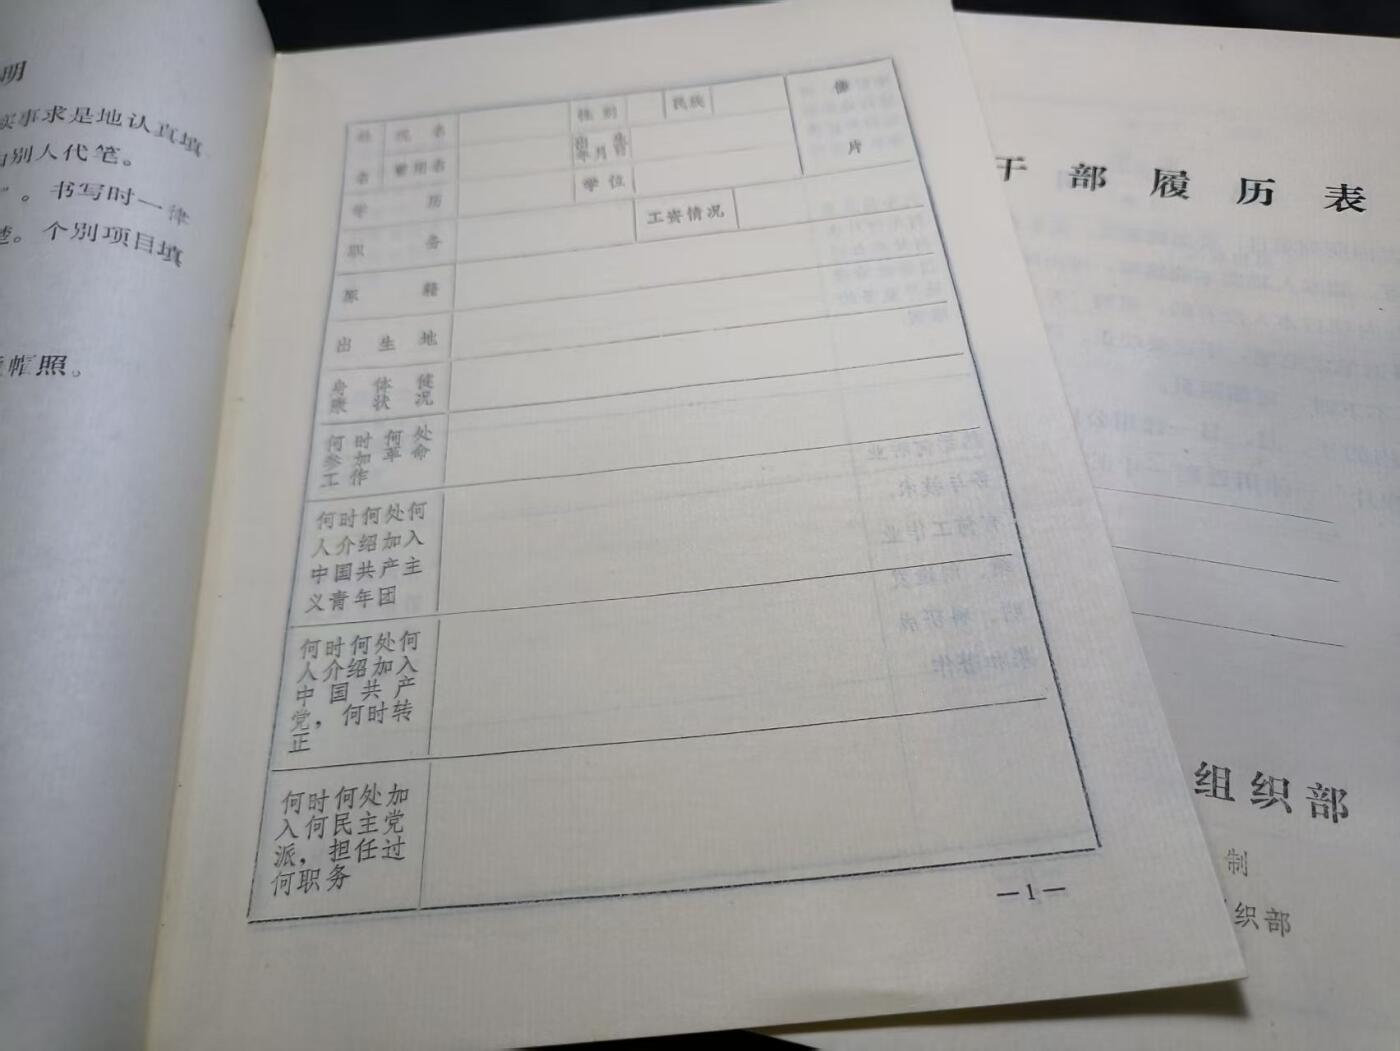 明
事求是地认真填
别人代笔。
”。书写时一律
楚。个别项目填
帽照。
姓 现名 性别 民族 像
名 曾用名 出生年月日 片
学历 学位
职务 工资情况
原籍
出生地
身体健
康状况
何时何处
参加革命
工作
何时何处何
人介绍加入
中国共产主
义青年团
何时何处何
人介绍加入
中国共产
党，何时转
正
何时何处加
入何民主党
派，担任过
何职务
—1—
干部履历表
组织部
制
织部